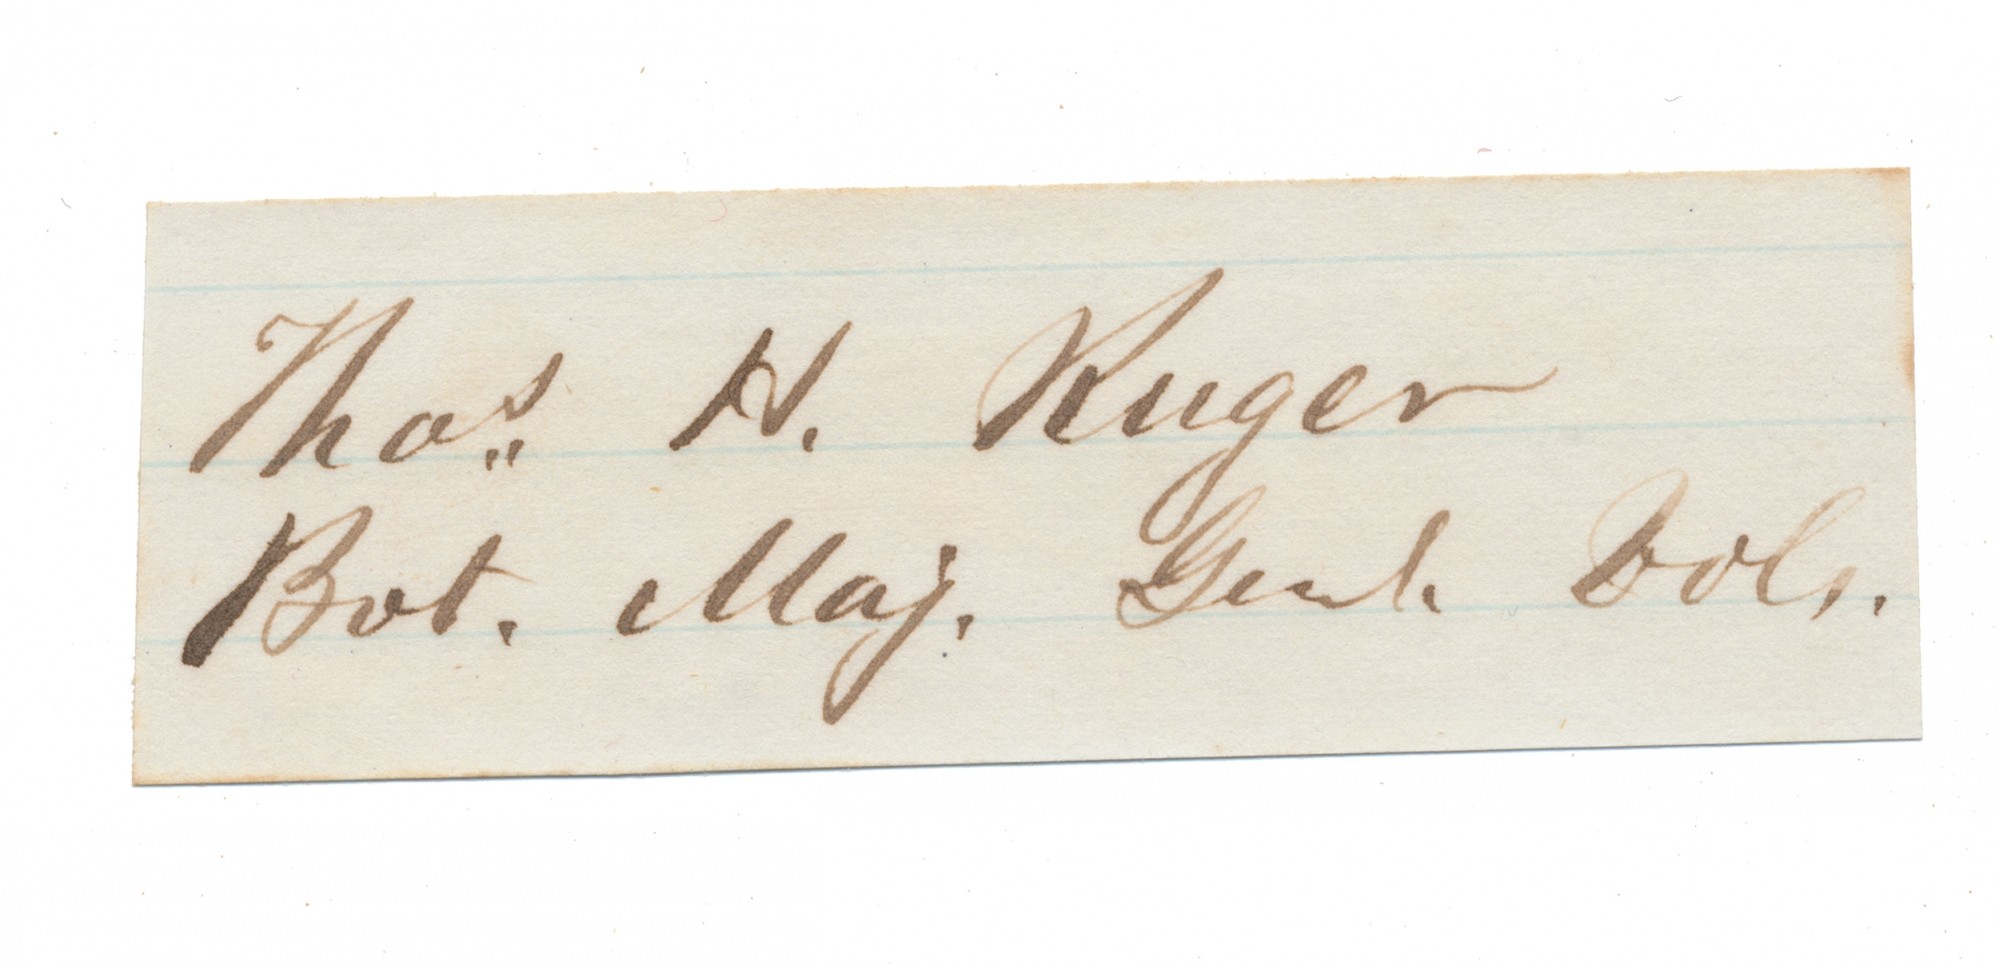 Thos. H. Ruger
Bvt. Maj. Genl. Vols.